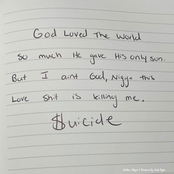 God Loved The World
So much He gave His only son.
But I aint God, Nigga this
Love shit is killing me.
$uicide